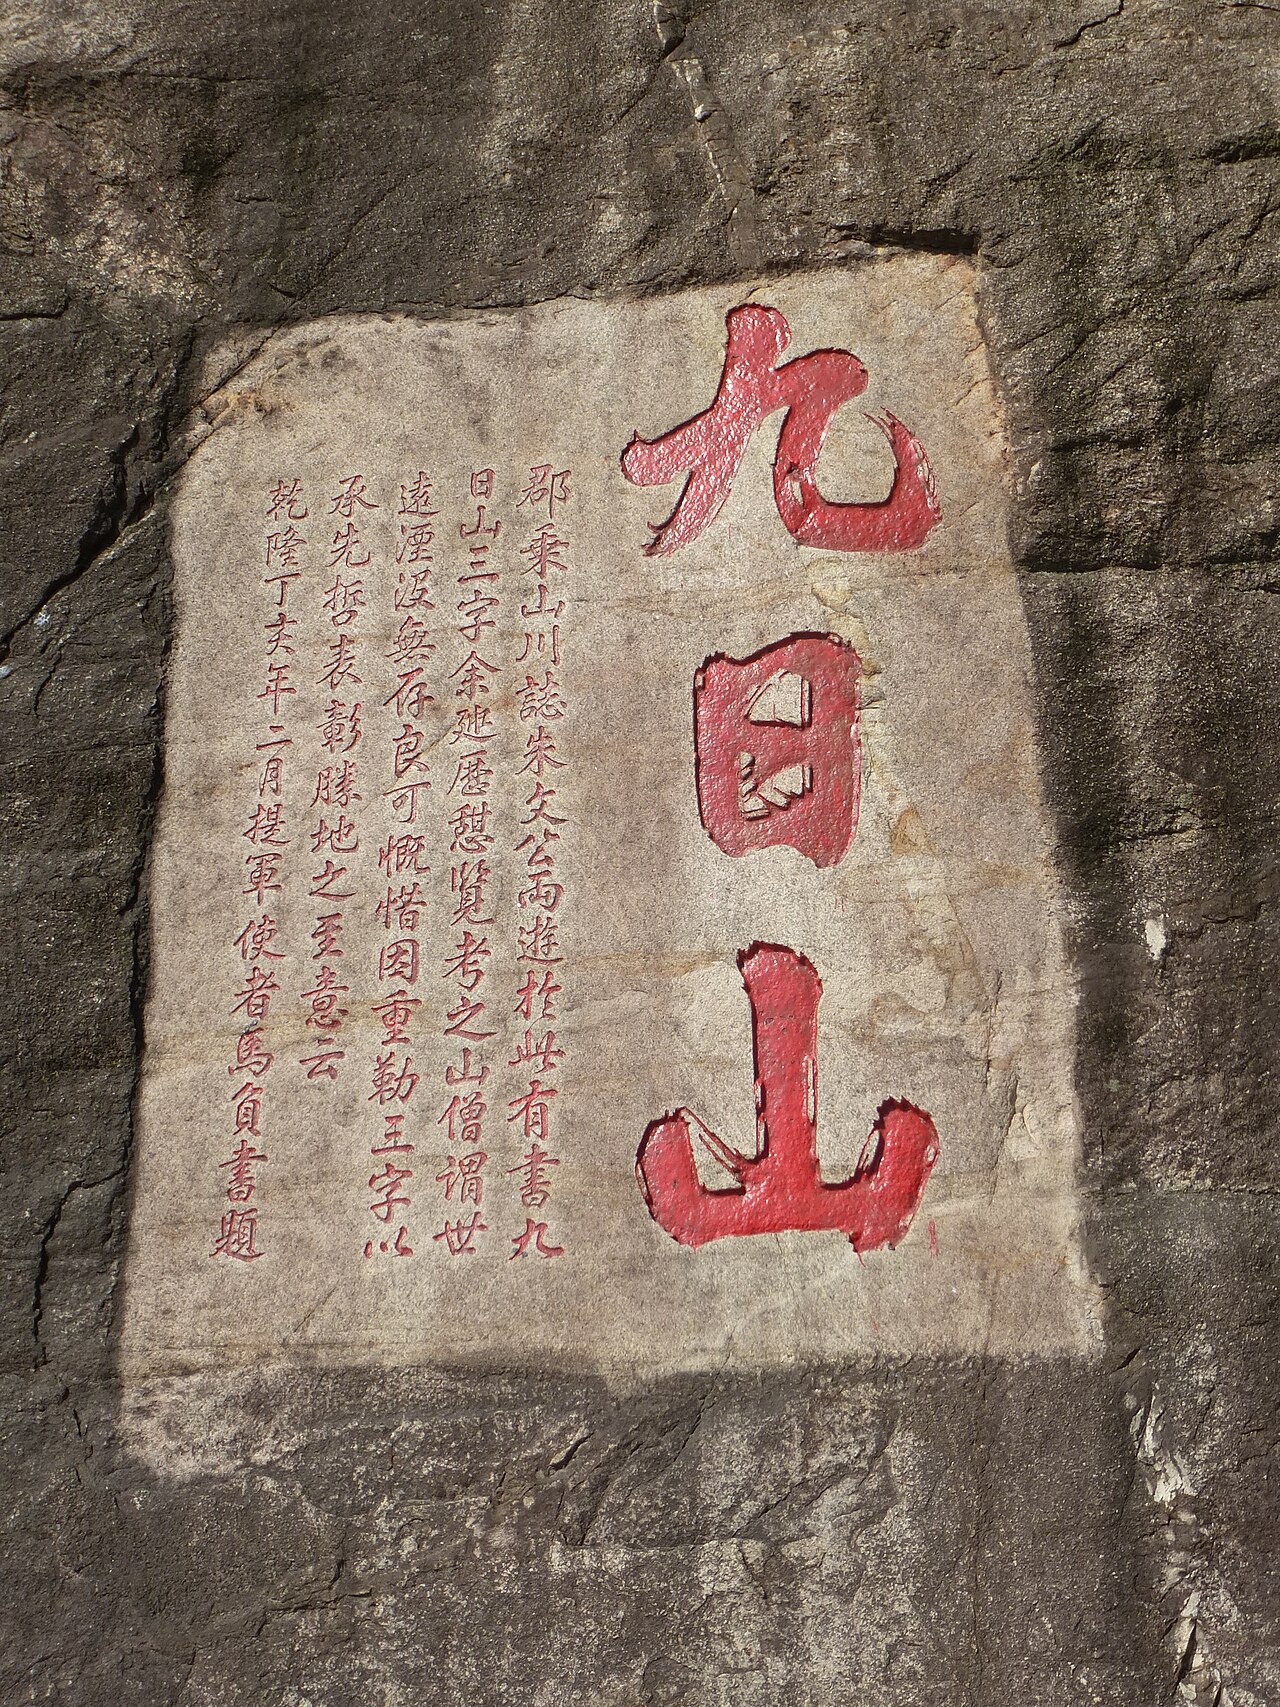 九日山
郡乘山川誌朱文公兩遊於此有書九
日山三字余延歷憇覽考之山僧謂世
遠湮沒無存良可慨惜因重勒三字以
承先哲表彰勝地之至意云
乾隆丁亥年二月提軍使者馬負書題